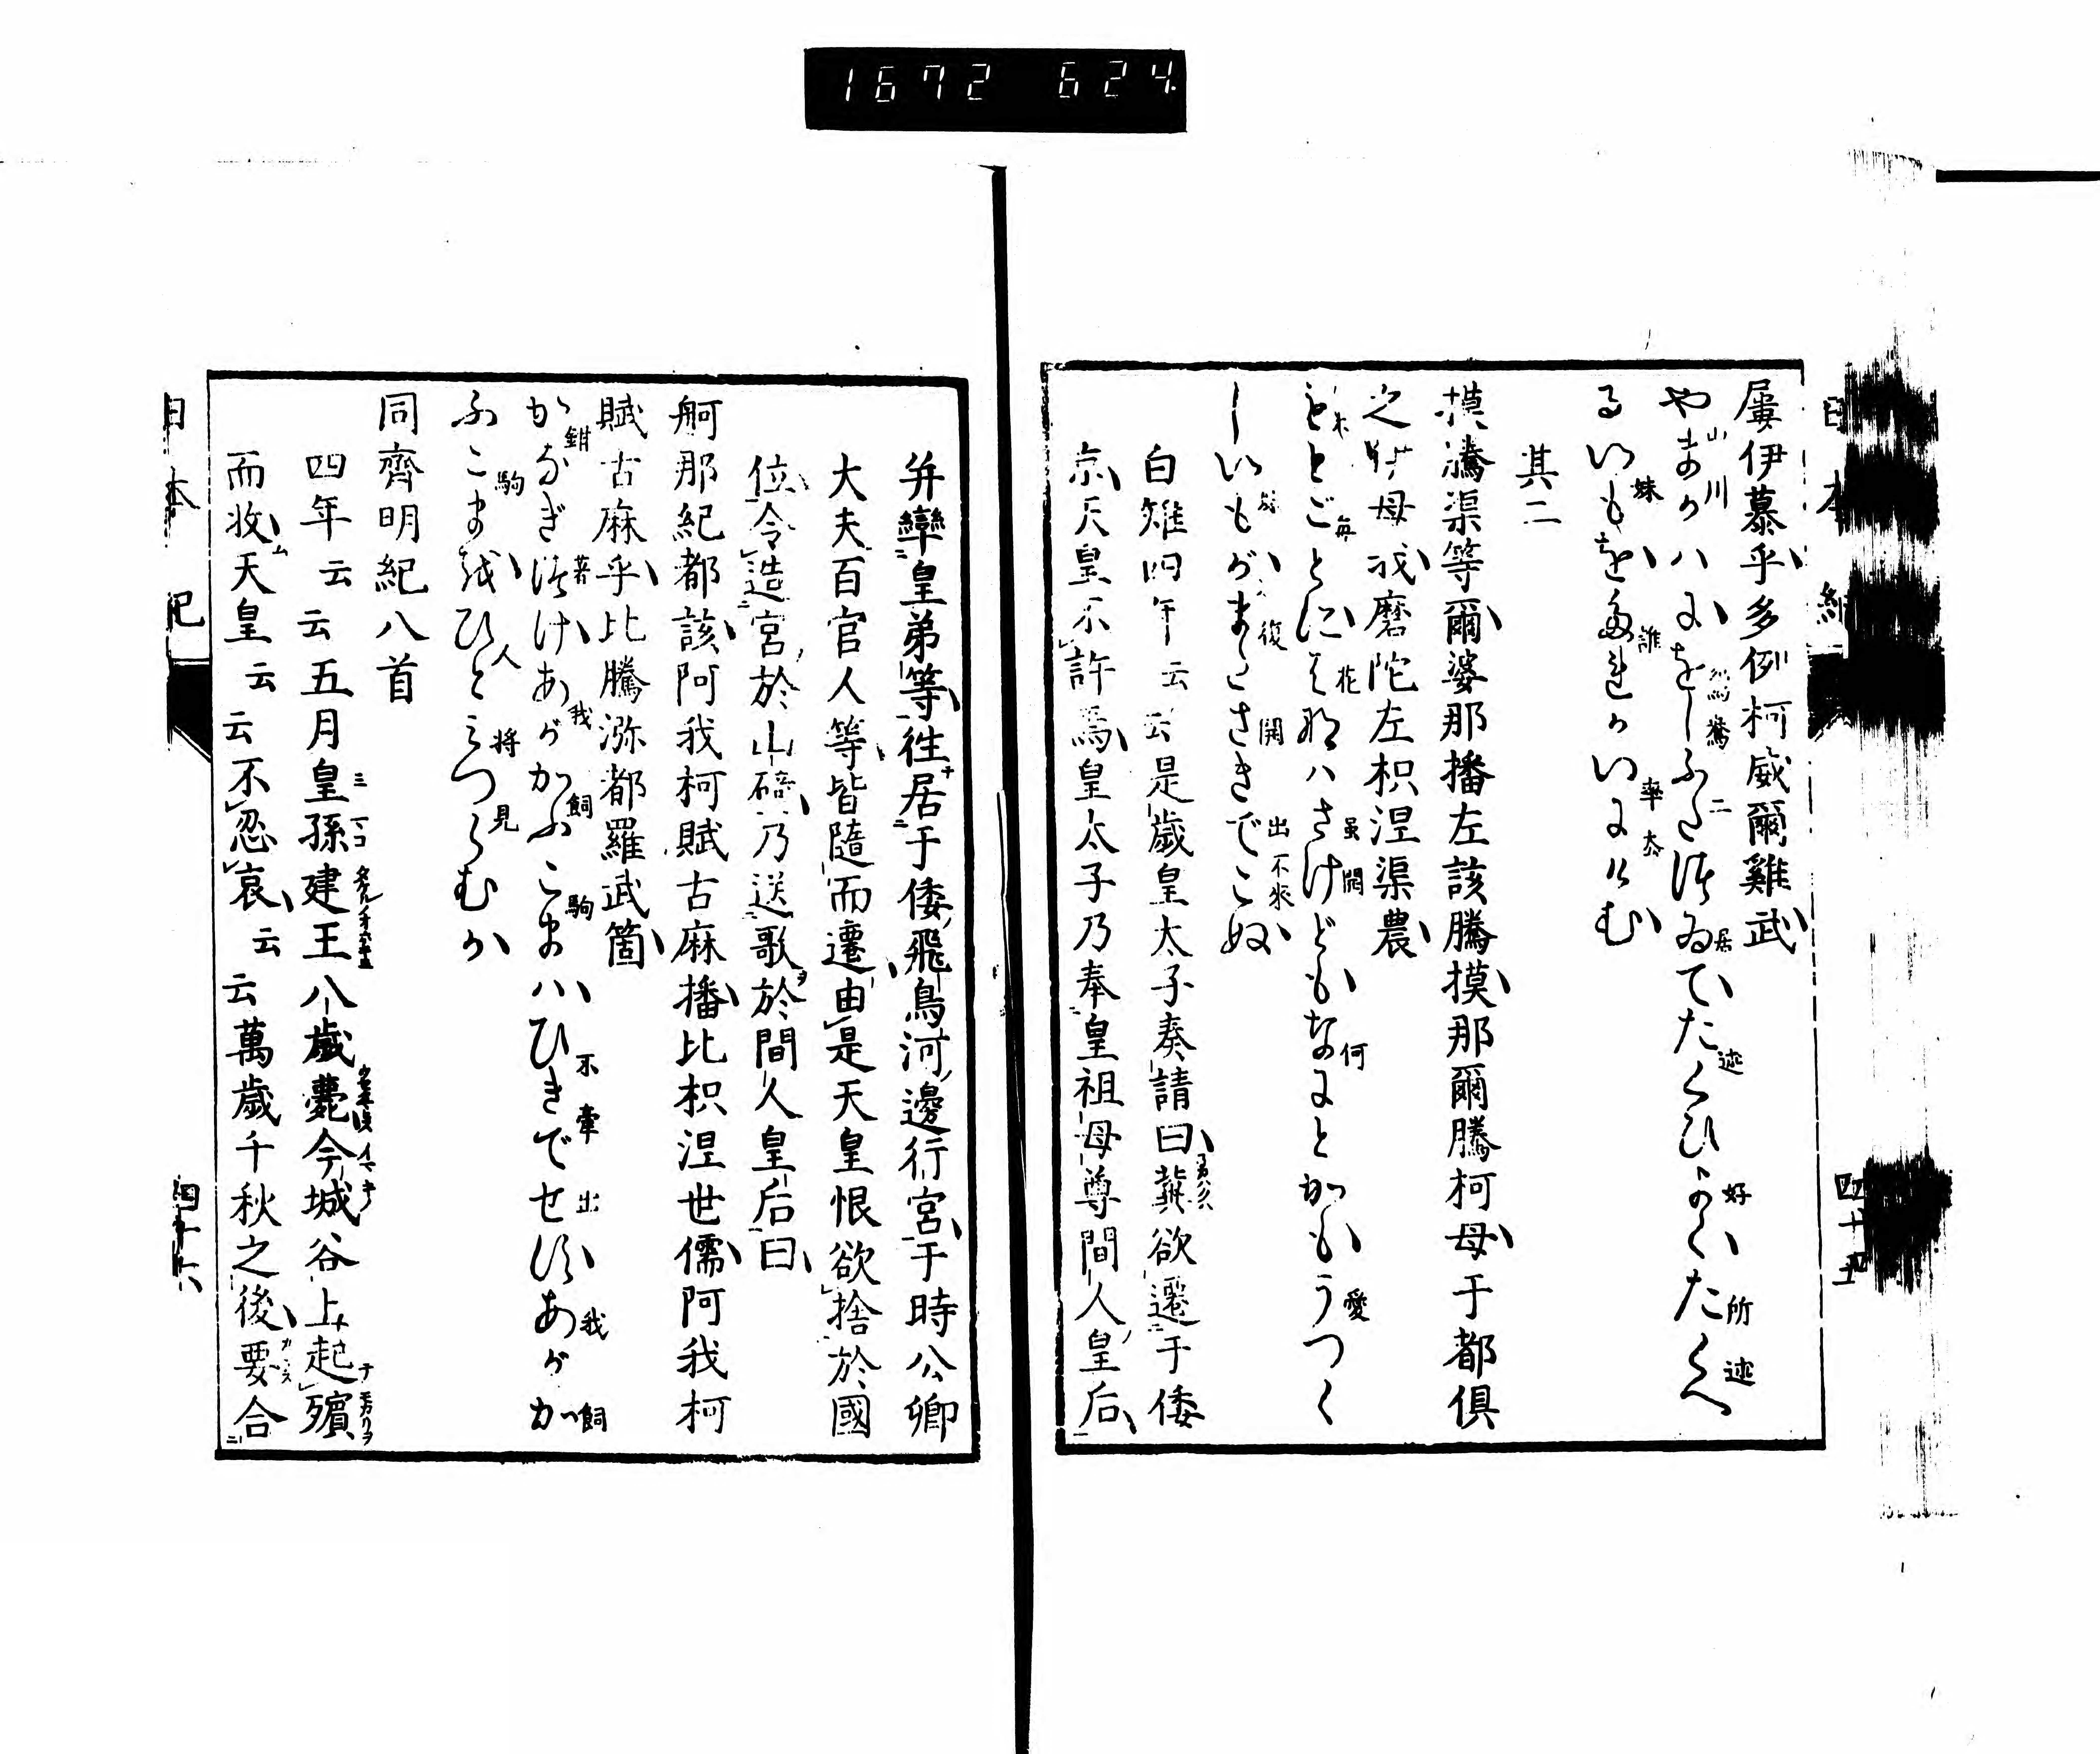 1672 624
日本紀
屢伊慕乎多例柯威爾雞武
やまかハにをしふたつゐてたくひよくたくへ
るいもをたれかいにけむ
其二
模騰渠等爾婆那播左該騰摸那爾騰柯母于都俱
之伊母我磨陀左枳涅渠農
もとごとにはなハさけどもなにとかもうつく
しいもがまたさきでこぬ
白雉四年云云是歲皇太子奏請曰冀欲遷于倭
京天皇不許焉皇太子乃奉皇祖母尊間人皇后
四十五
并率皇弟等徃居于倭飛鳥河邊行宮于時公卿
大夫百官人等皆隨而遷由是天皇恨欲捨於國
位令造宮於山碕乃送歌於間人皇后曰
舸那紀都該阿我柯賦古麻播比枳涅世儒阿我柯
賦古麻乎比騰瀰都羅武箇
かなぎつけあがかふこまハひきでせずあがか
ふこまをひとみつらむか
同齊明紀八首
四年云云五月皇孫建王八歲薨今城谷上起殯
而收天皇云云不忍哀云云萬歲千秋之後要合
日本紀
四十六